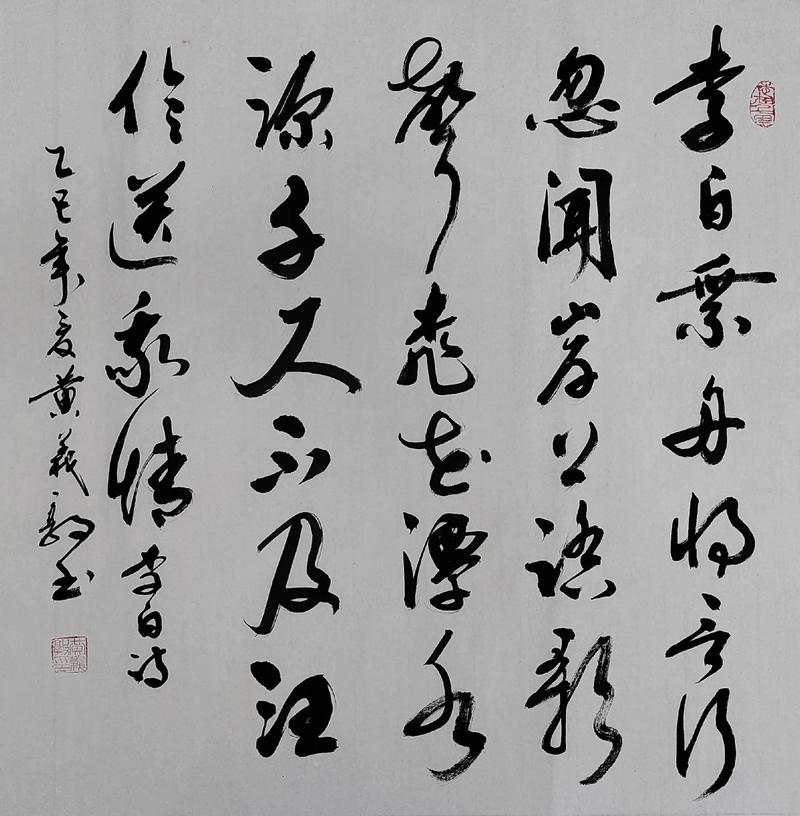 李白乘舟将欲行
忽闻岸上踏歌
声桃花潭水
深千尺不及汪
伦送我情 李白诗
乙巳年夏黄義书